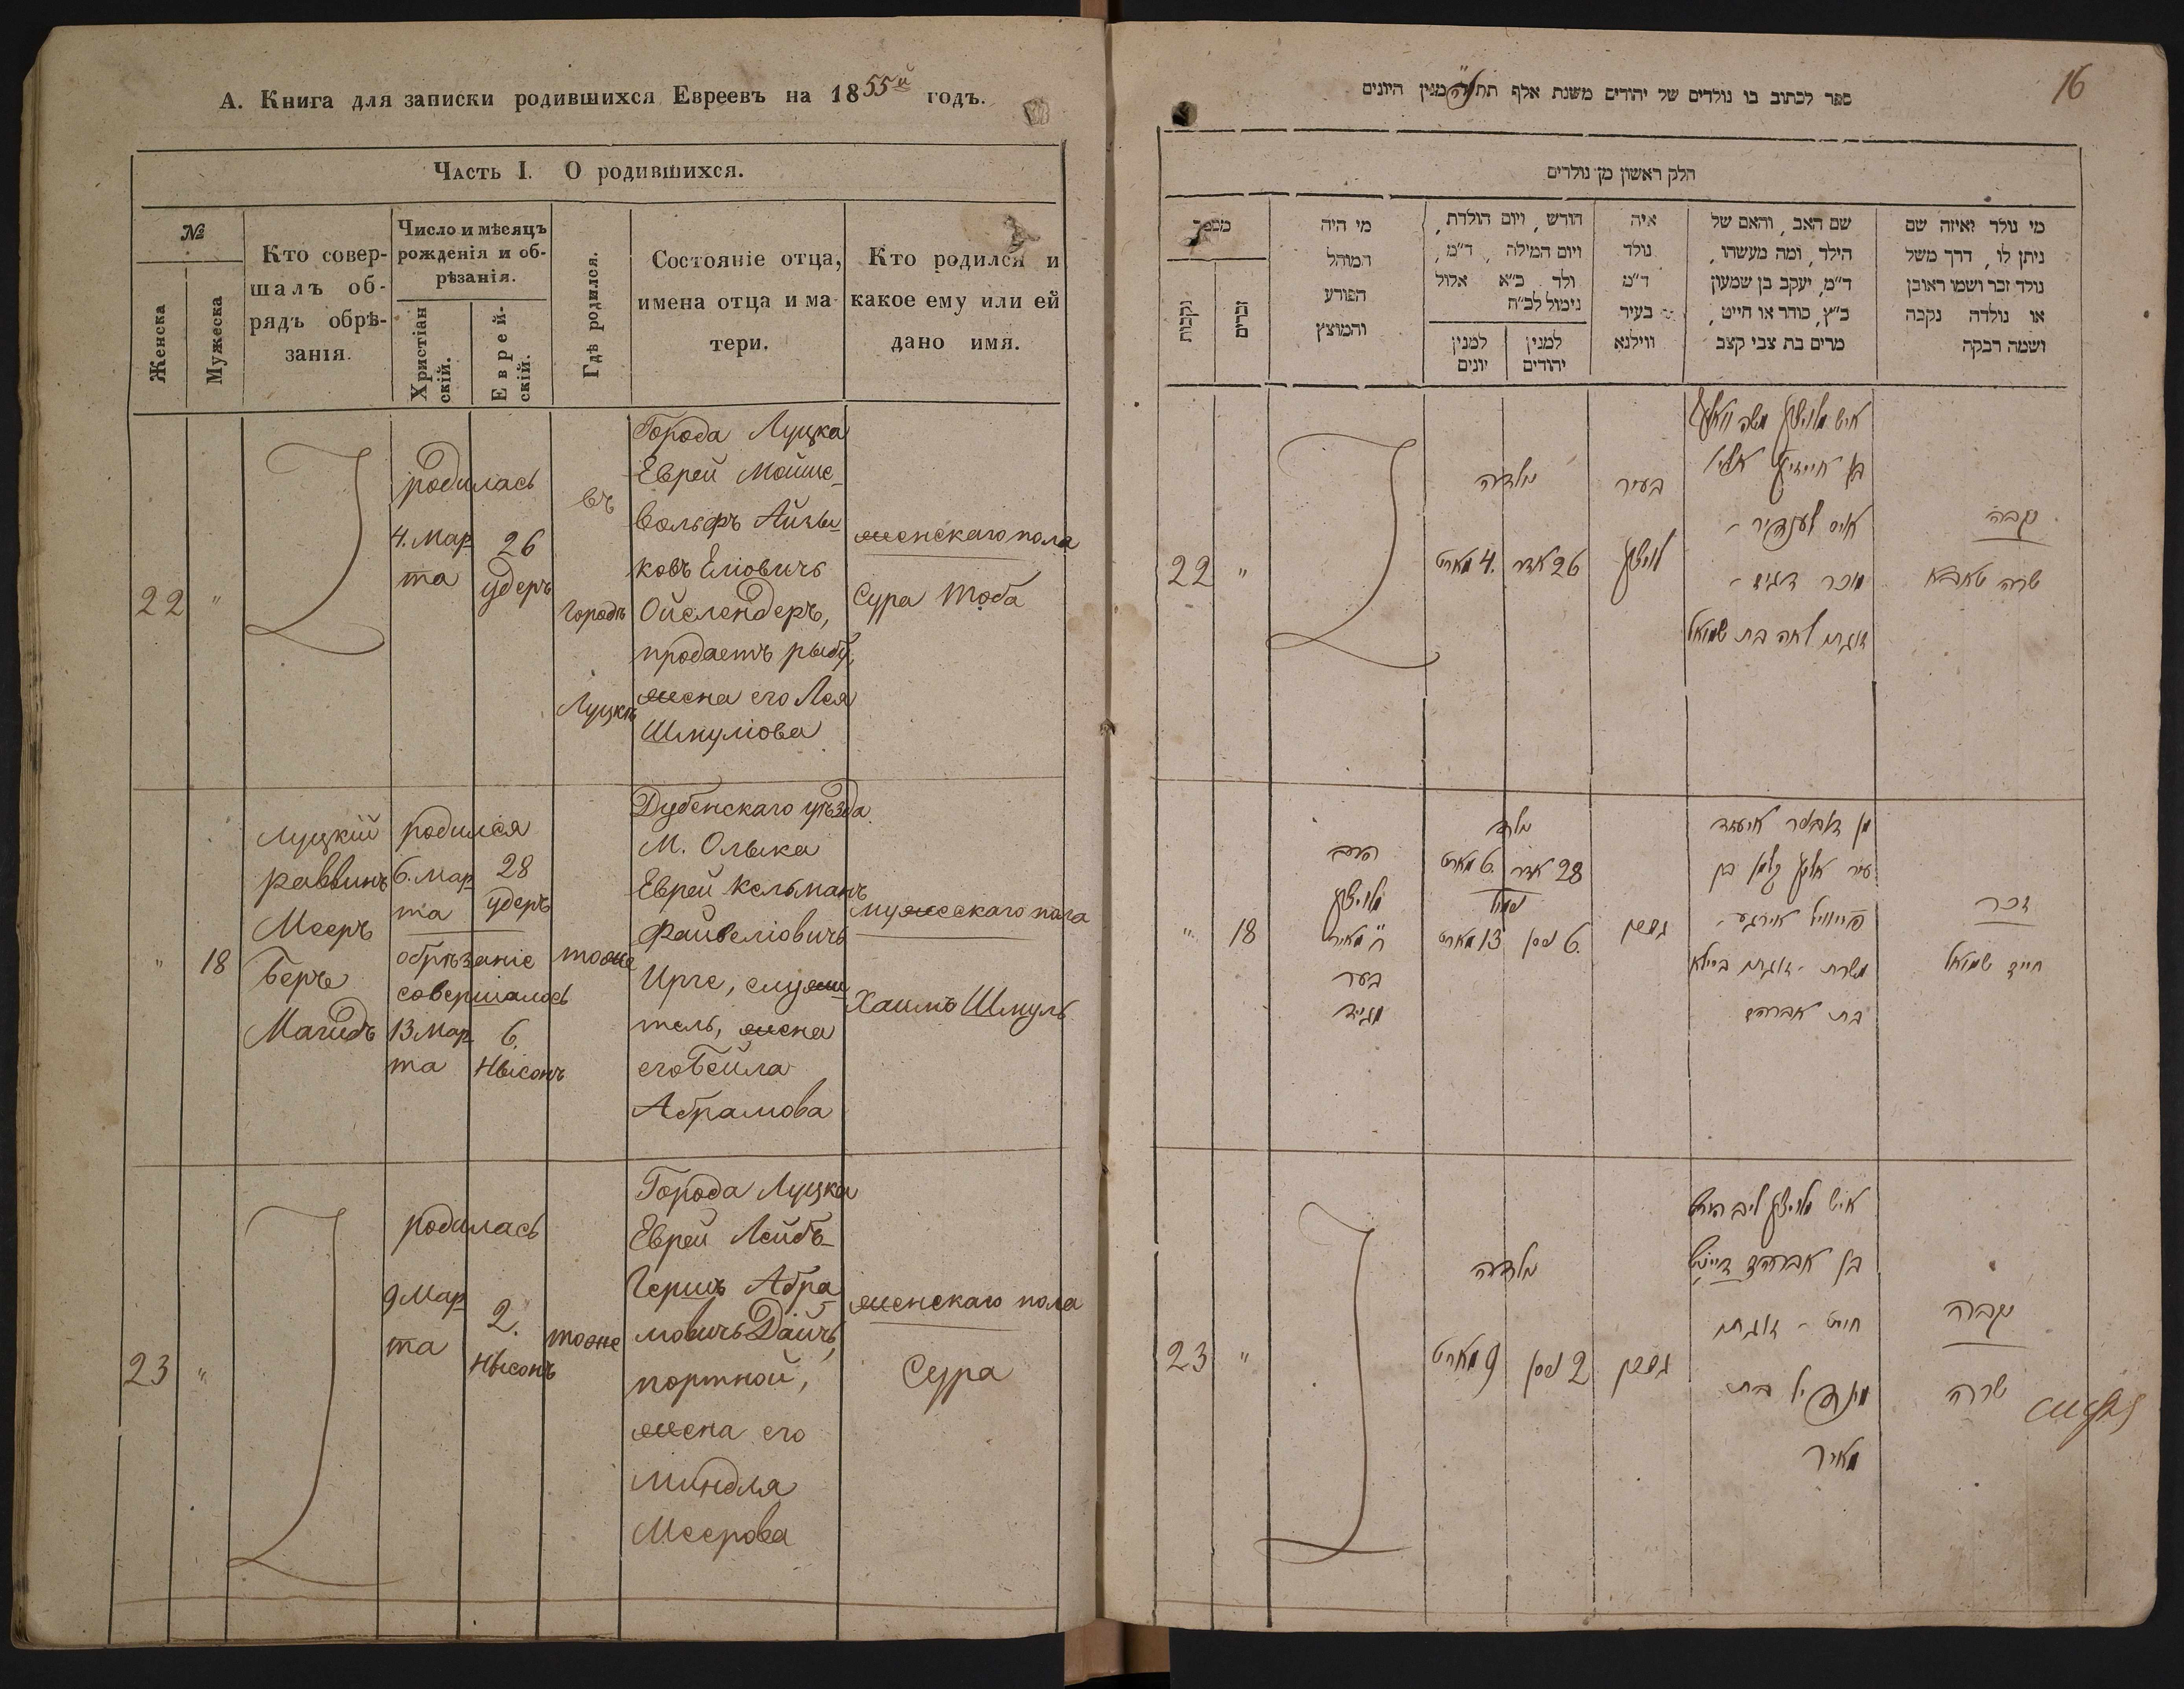 А. Книга для записки родившихся Евреевъ на 1855й годъ.
Часть I. О родившихся.
№
Женска
Мужеска
Кто совер-
шалъ об-
рядъ обрѣ-
занія.
Число и мѣсяцъ
рожденія и об-
рѣзанія.
Христіан
скій.
Еврей-
скій.
Гдѣ родился.
Состояніе отца,
имена отца и ма-
тери.
Кто родился и
какое ему или ей
дано имя.
22
"
родилась
4. Мар
та
26
удеръ
въ
городѣ
Луцкѣ
Города Луцка
Еврей Мойше-
Вольфъ Айзы-
ковъ Еліовичъ
Ойслендеръ,
продаетъ рыбу,
жена его Лея
Шмуліова
женскаго пола
Сура Тоба
"
18
Луцкій
раввинъ
Мееръ
Беръ
Магидъ
родился
6. Мар
та
28
удеръ
обрѣзаніе
совершалось
13 Мар
та
6.
Нысонъ
тоже
Дубенскаго уѣзда
М. Олыка
Еврей Кельманъ
Файвеліовичъ
Ирге, служи
тель, жена
его Бейла
Абрамова
мужескаго пола
Хаимъ Шмуль
23
"
родилась
9 Мар
та
2.
Нысонъ
тоже
Города Луцка
Еврей Лейбъ-
Гершъ Абра
мовичъ Дайчъ,
портной,
жена его
Миндля
Меерова
женскаго пола
Сура
16
ספר לכתוב בו נולדים של יהודים משנת אלף תת נ"ה מנין היונים
חלק ראשון מן נולדים
מי נולד ואיזה שם
ניתן לו, דרך משל
נולד זכר ושמו ראובן
או נולדה נקבה
ושמה רבקה
שם האב, והאם של
הילד, ומה מעשהו,
ד"מ, יעקב בן שמעון
כ"ץ, סוחר או חייט,
מרים בת צבי קצב
איה
נולד
ד"מ
בעיר
ווילנא
חודש, ויום הולדת,
ויום המילה, ד"מ,
ולד כ"א אלול
נימול לכ"ח
למנין
יהודים
למנין
יונים
מי היה
המוהל
הפורע
והמוצץ
מספר
זכרים
נקבות
נקבה
שרה טאבא
איש מלויצק משה וואלף
בן אייזיק אליי
אויסלענדיר -
מוכר דגים -
זוגתו לאה בת שמואל
בעיר
לויצק
נולדה
26 אדר
4. מארט
22
"
זכר
חיים שמואל
עיר אליק קלמן בן
פייוויל אירגע -
משרת - זוגתו ביילא
בת אברהם
נולד
28 אדר
6. מארט
נימול
6. ניסן
13 מארט
הרב
מלויצק
ר' מאיר
בער
מגיד
"
18
נקבה
שרה
איש מלויצק ליב הירש
בן אברהם דייטש
חייט - זוגתו
מינדיל בת
מאיר
נולדה
2 ניסן
9 מארט
23
"